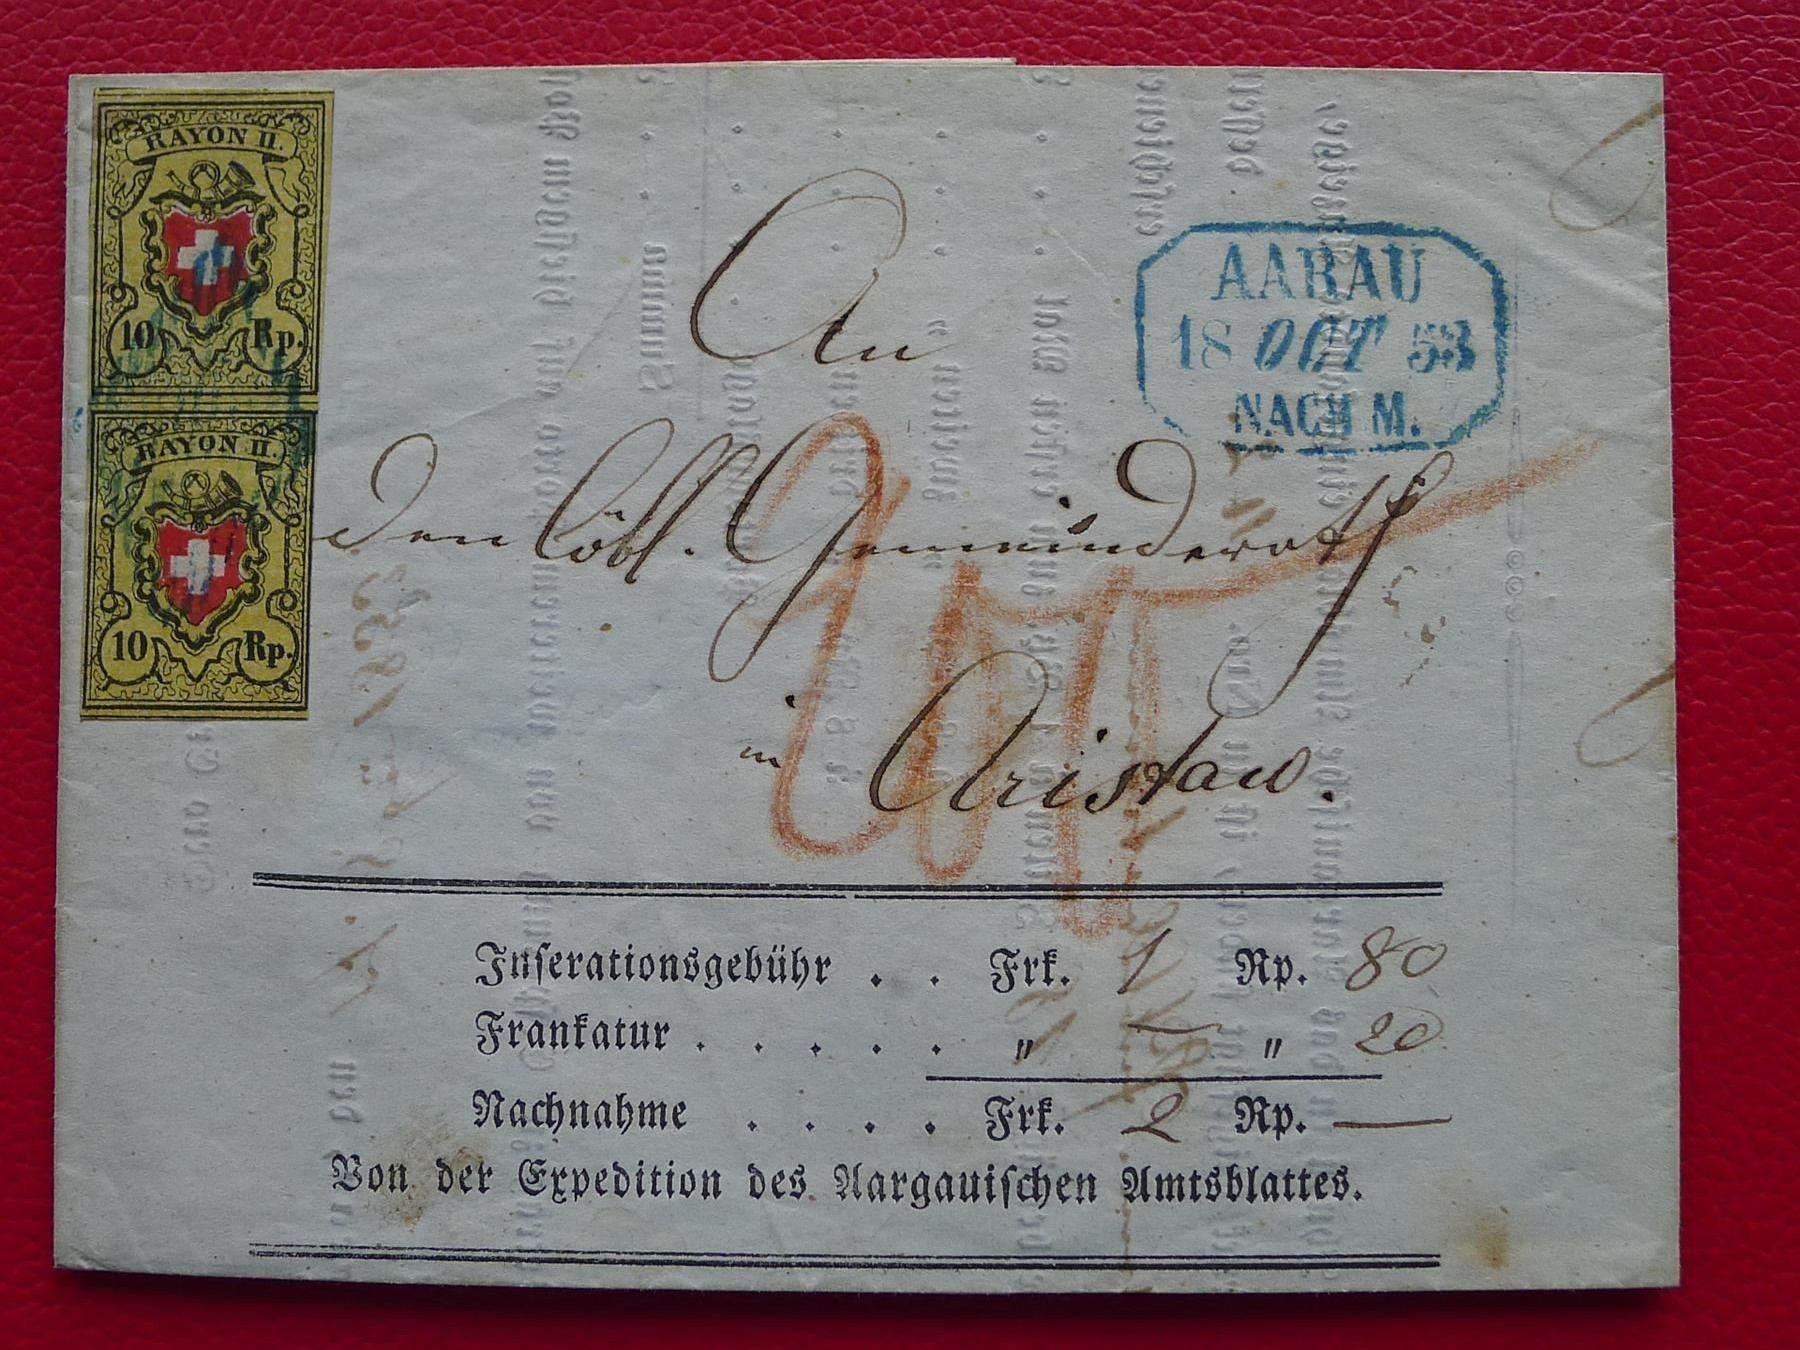 RAYON II.
10 Rp.
RAYON II.
10 Rp.
AARAU
18 OCT 53
NACHM.
An
den löbl. Gemeinderath
in Aristau.
Inserationsgebühr . . Frk. 1 Rp. 80
Frankatur . . . . . „ — „ 20
Nachnahme . . . . Frk. 2 Rp. —
Von der Expedition des Aargauischen Amtsblattes.